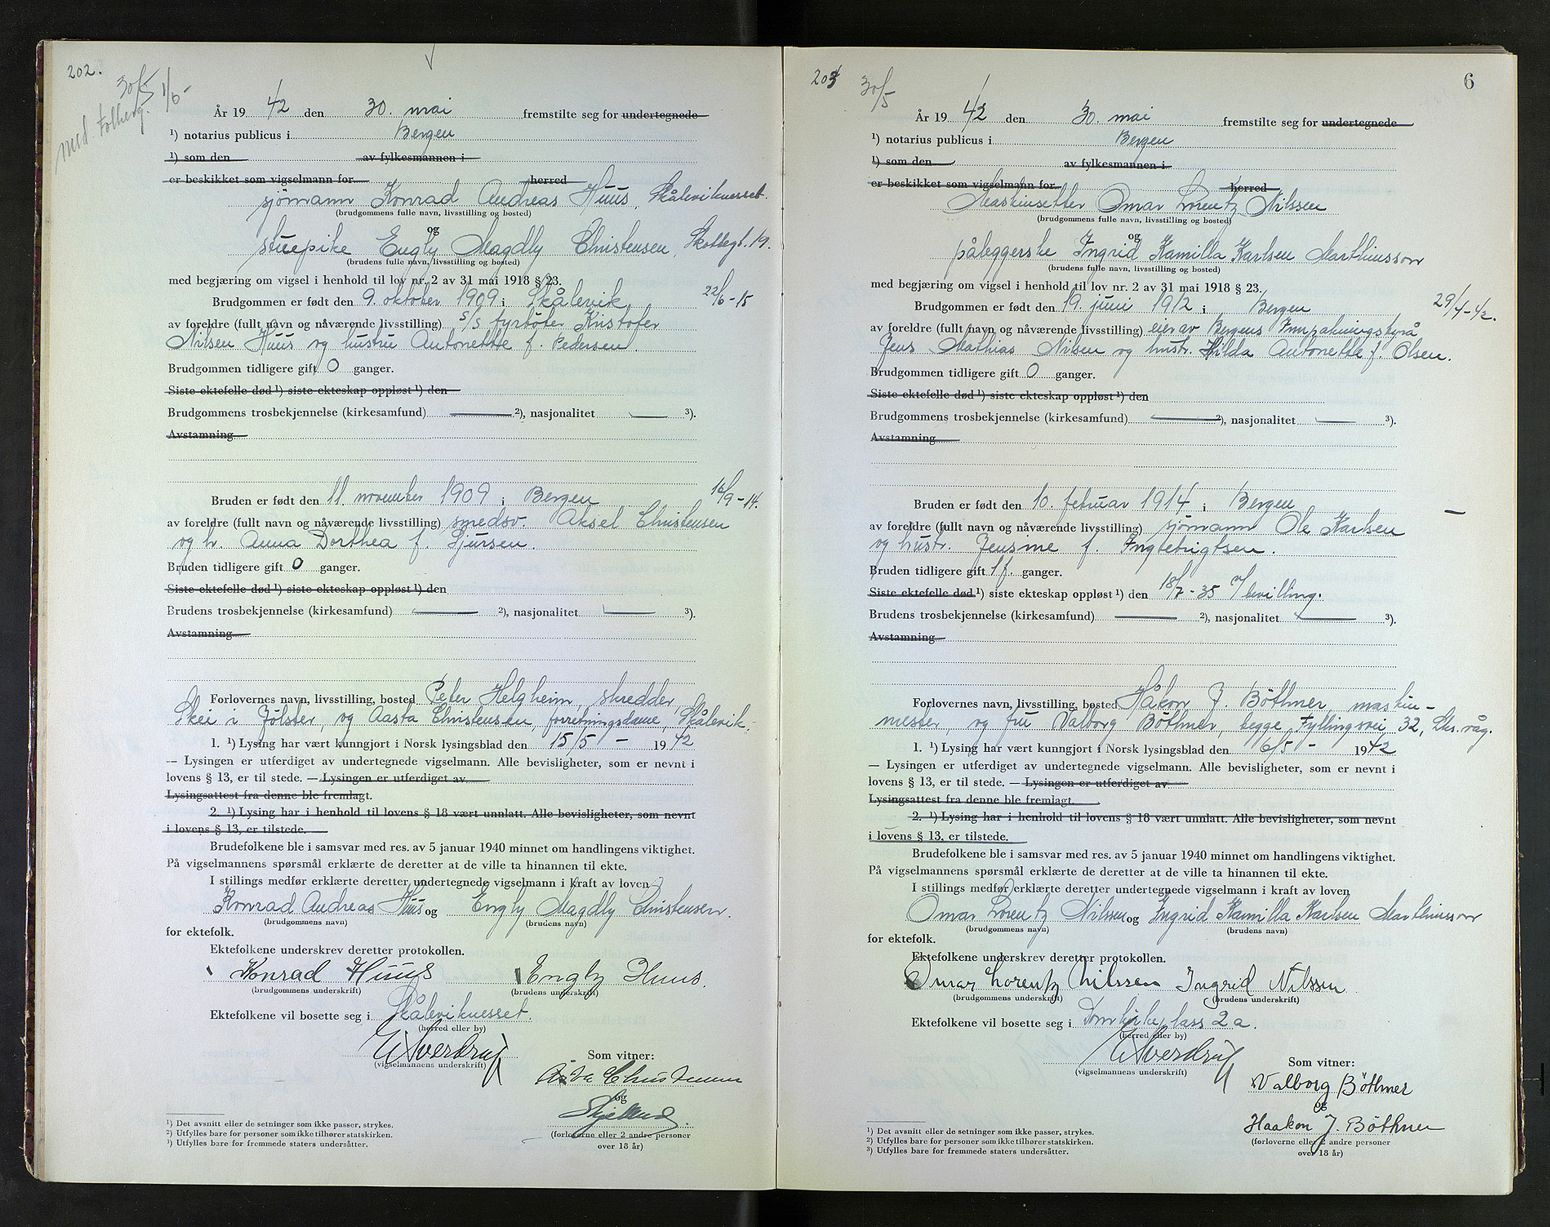 202.
30/5 1/6 -
med. Folkereg.
År 19 42 den 30. mai fremstilte seg for undertegnede
¹) notarius publicus i Bergen
¹) som den av fylkesmannen i
er beskikket som vigselmann for herred
sjømann Konrad Andreas Huus, Skåleviknesset.
(brudgommens fulle navn, livsstilling og bosted)
og
stuepike Engly Magdly Christensen, Skottegt. 19.
(brudens fulle navn, livsstilling og bosted)
med begjæring om vigsel i henhold til lov nr. 2 av 31 mai 1918 § 23.
Brudgommen er født den 9. oktober 1909 i Skålevik 22/6 - 15
av foreldre (fullt navn og nåværende livsstilling) s/s fyrbøter Kristofer
Nilsen Huus og hustru Antonette f. Pedersen.
Brudgommen tidligere gift 0 ganger.
Siste ektefelle død ¹) siste ekteskap oppløst ¹) den
Brudgommens trosbekjennelse (kirkesamfund) ²), nasjonalitet ³).
Avstamning
Bruden er født den 11. november 1909 i Bergen 16/9 - 14.
av foreldre (fullt navn og nåværende livsstilling) smedsv. Aksel Christensen
og h. Anna Dorthea f. Sjursen.
Bruden tidligere gift 0 ganger.
Siste ektefelle død ¹) siste ekteskap oppløst ¹) den
Brudens trosbekjennelse (kirkesamfund) ²), nasjonalitet ³).
Avstamning
Forlovernes navn, livsstilling, bosted Peter Helgheim, skredder,
Skei i Jølster, og Aasta Christensen, forretningsdame, Skålevik.
1. ¹) Lysing har vært kunngjort i Norsk lysingsblad den 15/5 - 1942
— Lysingen er utferdiget av undertegnede vigselmann. Alle bevisligheter, som er nevnt i
lovens § 13, er til stede. — Lysingen er utferdiget av
Lysingsattest fra denne ble fremlagt.
2. ¹) Lysing har i henhold til lovens § 18 vært unnlatt. Alle bevisligheter, som nevnt
i lovens § 13, er tilstede.
Brudefolkene ble i samsvar med res. av 5 januar 1940 minnet om handlingens viktighet.
På vigselmannens spørsmål erklærte de deretter at de ville ta hinannen til ekte.
I stillings medfør erklærte deretter undertegnede vigselmann i kraft av loven
Konrad Andreas Huus og Engly Magdly Christensen.
(brudgommens navn) (brudens navn)
for ektefolk.
Ektefolkene underskrev deretter protokollen.
Konrad Huus Engly Huus.
(brudgommens underskrift) (brudens underskrift)
Ektefolkene vil bosette seg i Skåleviknesset.
(herred eller by)
(vigselmannens underskrift)
Som vitner:
Asta Christensen
og
(forloverne eller 2 andre personer
over 18 år)
¹) Det avsnitt eller de setninger som ikke passer, strykes.
²) Utfylles bare for personer som ikke tilhører statskirken.
³) Utfylles bare for fremmede staters undersåtter.
203
30/5
6
År 19 42 den 30. mai fremstilte seg for undertegnede
¹) notarius publicus i Bergen
¹) som den av fylkesmannen i
er beskikket som vigselmann for herred
Maskinsetter Omar Lorentz Nilssen
(brudgommens fulle navn, livsstilling og bosted)
og
påleggerske Ingrid Kamilla Karlsen Marthinsson
(brudens fulle navn, livsstilling og bosted)
med begjæring om vigsel i henhold til lov nr. 2 av 31 mai 1918 § 23.
Brudgommen er født den 19. juni 1912 i Bergen 29/4 - 42.
av foreldre (fullt navn og nåværende livsstilling) eier av Bergens Innpakningsbyrå
Jens Mathias Nilsen og hustr. Hilda Antonette f. Olsen.
Brudgommen tidligere gift 0 ganger.
Siste ektefelle død ¹) siste ekteskap oppløst ¹) den
Brudgommens trosbekjennelse (kirkesamfund) ²), nasjonalitet ³).
Avstamning
Bruden er født den 10. februar 1914 i Bergen —
av foreldre (fullt navn og nåværende livsstilling) sjømann Ole Karlsen
og hustr. Jensine f. Ingebrigtsen.
Bruden tidligere gift 1 g. ganger.
Siste ektefelle død ¹) siste ekteskap oppløst ¹) den 18/7 - 35 v/ bevilling.
Brudens trosbekjennelse (kirkesamfund) ²), nasjonalitet ³).
Avstamning
Forlovernes navn, livsstilling, bosted Håkon J. Böthner, maskin-
mester, og fru Valborg Böthner, begge Fyllingsvei 32, Lks.våg.
1. ¹) Lysing har vært kunngjort i Norsk lysingsblad den 16/5 - 1942
— Lysingen er utferdiget av undertegnede vigselmann. Alle bevisligheter, som er nevnt i
lovens § 13, er til stede. — Lysingen er utferdiget av
Lysingsattest fra denne ble fremlagt.
2. ¹) Lysing har i henhold til lovens § 18 vært unnlatt. Alle bevisligheter, som nevnt
i lovens § 13, er tilstede.
Brudefolkene ble i samsvar med res. av 5 januar 1940 minnet om handlingens viktighet.
På vigselmannens spørsmål erklærte de deretter at de ville ta hinannen til ekte.
I stillings medfør erklærte deretter undertegnede vigselmann i kraft av loven
Omar Lorentz Nilssen og Ingrid Kamilla Karlsen Marthinsson
(brudgommens navn) (brudens navn)
for ektefolk.
Ektefolkene underskrev deretter protokollen.
Omar Lorentz Nilssen Ingrid Nilssen
(brudgommens underskrift) (brudens underskrift)
Ektefolkene vil bosette seg i Domkirkeplass 2a.
(herred eller by)
(vigselmannens underskrift)
Som vitner:
Valborg Böthner
og
Haakon J. Böthner
(forloverne eller 2 andre personer
over 18 år)
¹) Det avsnitt eller de setninger som ikke passer, strykes.
²) Utfylles bare for personer som ikke tilhører statskirken.
³) Utfylles bare for fremmede staters undersåtter.